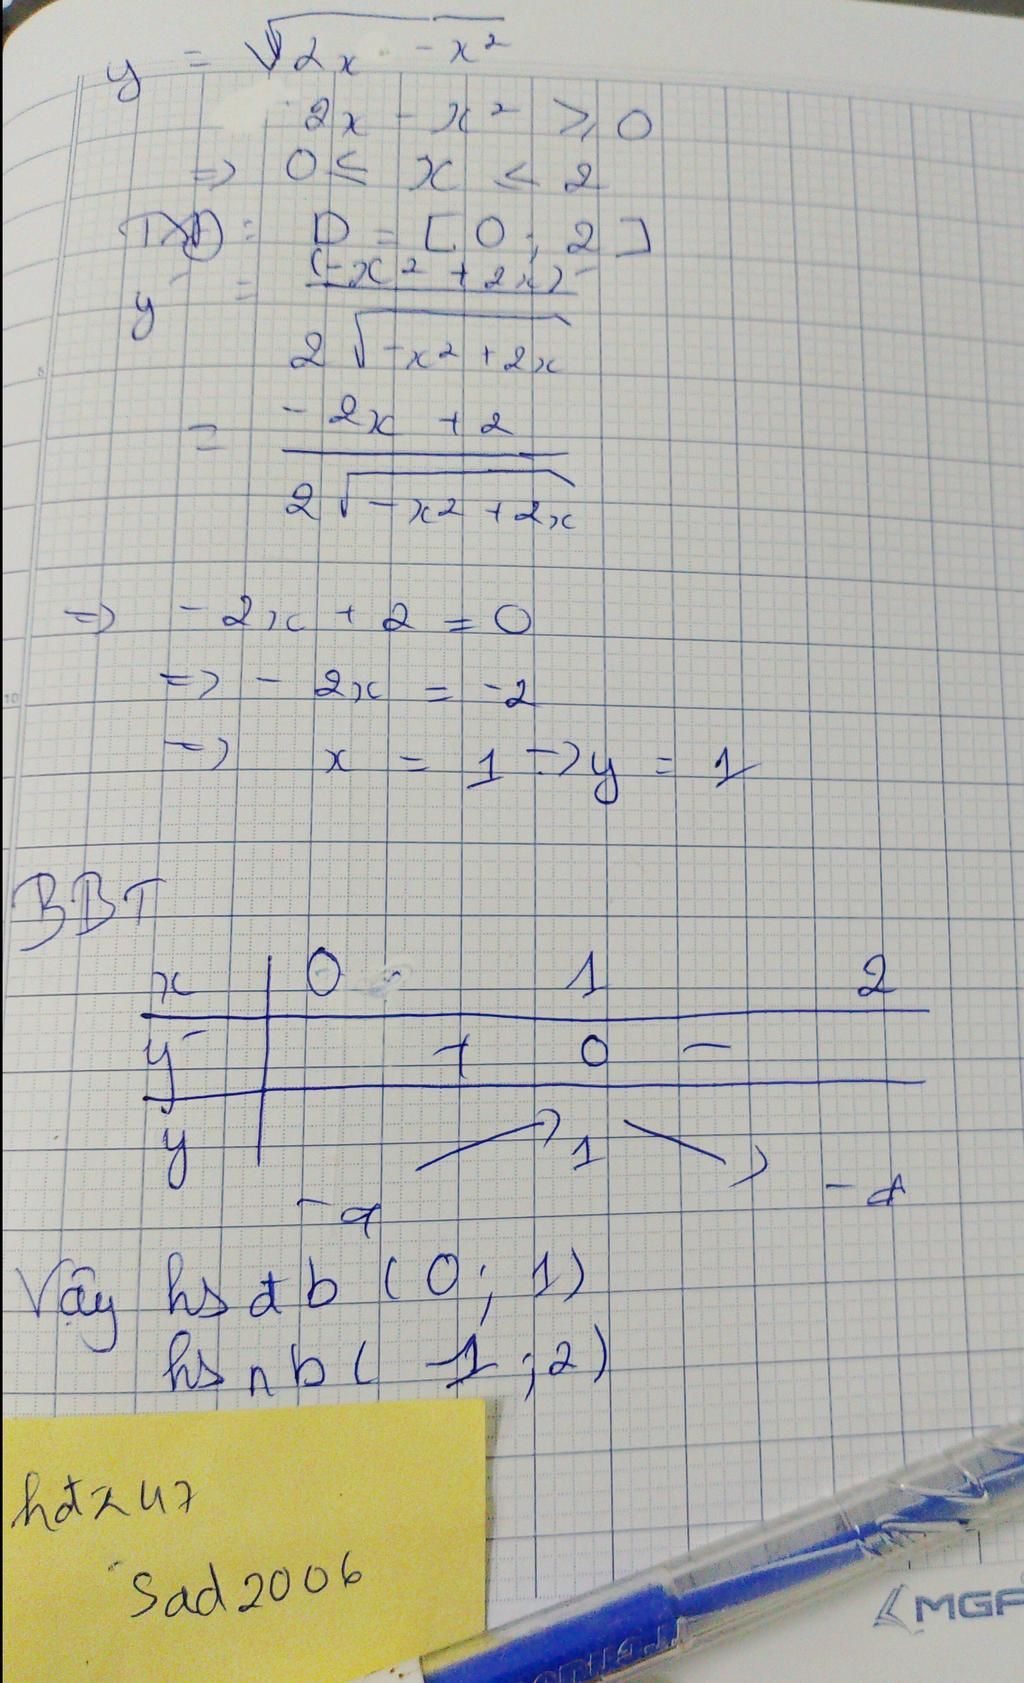 y = √2x - x²
2x - x² ⩾ 0
=> 0 ≤ x ≤ 2
TXD: D = [0; 2]
y' = (-x² + 2x)' / 2√-x² + 2x
= -2x + 2 / 2√-x² + 2x
=> -2x + 2 = 0
=> -2x = -2
=> x = 1 => y = 1
BBT
x 0 1 2
y' + 0 -
y 1
Vậy hs đb (0; 1)
hs nb (1; 2)
hdz47
Sad2006
MGF